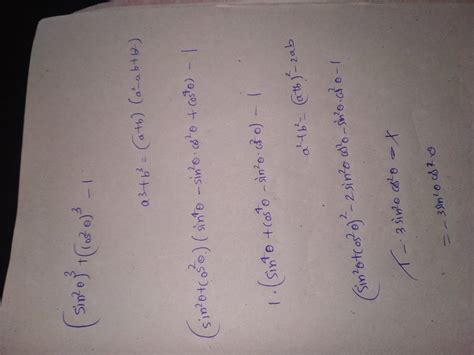 (sin²θ)³ + (cos²θ)³ - 1
a³+b³ = (a+b) (a²-ab+b²)
(sin²θ+cos²θ) (sin⁴θ - sin²θ·cos²θ + cos⁴θ) - 1
1·(sin⁴θ + cos⁴θ - sin²θ·cos²θ) - 1
a²+b² = (a+b)² - 2ab
(sin²θ+cos²θ)² - 2 sin²θ cos²θ - sin²θ·cos²θ - 1
1 - 3 sin²θ cos²θ - 1
= -3 sin²θ cos²θ